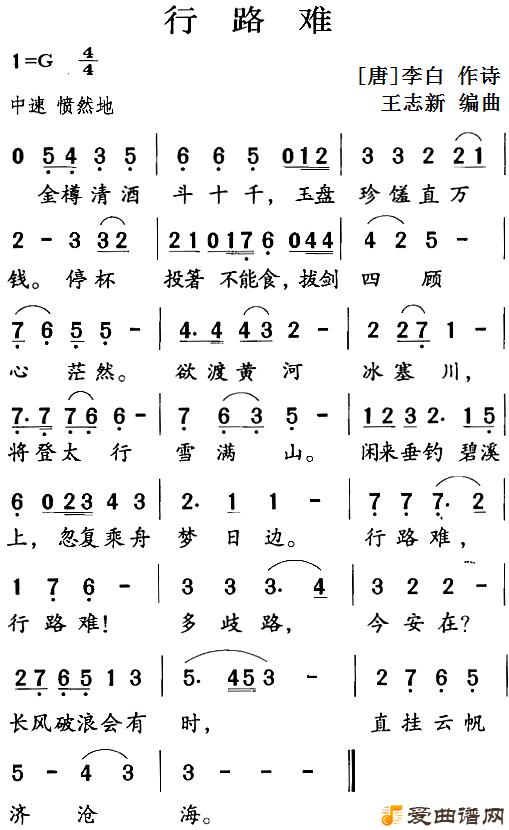 行路难
1=G 4/4
[唐]李白 作诗
中速 愤然地
王志新 编曲
0 5 4 3 5 | 6 6 5 0 1 2 | 3 3 2 2 1
金樽清酒 斗十千，玉盘 珍馐直万
2 - 3 3 2 | 2 1 0 1 7 6 0 4 4 | 4 2 5 -
钱。停杯 投箸不能食，拔剑 四顾
7 6 5 5 - | 4. 4 4 4 3 2 - | 2 2 7 1 -
心茫然。 欲渡黄河 冰塞川，
7. 7 7 7 6 6 - | 7 6 3 5 - | 1 2 3 2. 1 5
将登太行 雪满山。 闲来垂钓 碧溪
6 0 2 3 4 3 | 2. 1 1 - | 7 7 7. 2
上，忽复乘舟 梦日边。 行路难，
1 7 6 - | 3 3 3. 4 | 3 2 2 -
行路难！ 多歧路， 今安在？
2 7 6 5 1 3 | 5. 4 5 3 - - | 2 7 6 5
长风破浪会有 时， 直挂云帆
5 - 4 4 2 | 3 - - - ‖
济沧海。
爱曲谱网